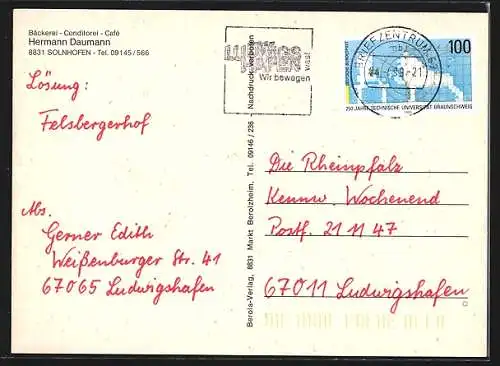 Bäckerei - Conditorei - Café
Hermann Daumann
8831 SOLNHOFEN - Tel. 09145/566
Lösung:
Felsbergerhof
Abs.
Gerner Edith
Weißenburger Str. 41
67065 Ludwigshafen
Berola-Verlag, 8831 Markt Berolzheim, Tel. 09146 / 236 - Nachdruck verboten
LUDWIGS
HAFEN
Wir bewegen
BRIEFZENTRUM
100
DEUTSCHE BUNDESPOST
250 JAHRE TECHNISCHE UNIVERSITÄT BRAUNSCHWEIG
Die Rheinpfalz
Kennw. Wochenend
Postf. 21 11 47
67011 Ludwigshafen